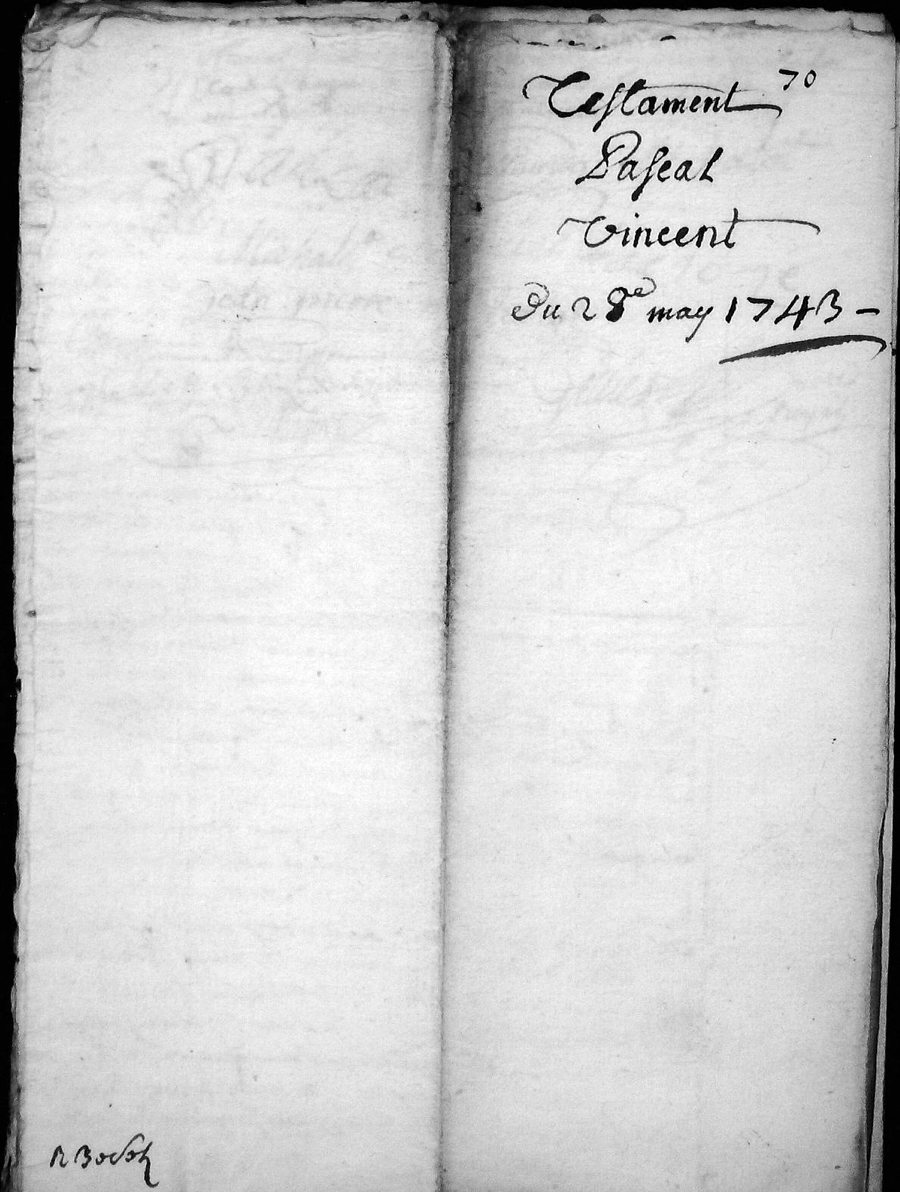 70
Testament
Pascal
Vincent
Du 28e may 1743 –